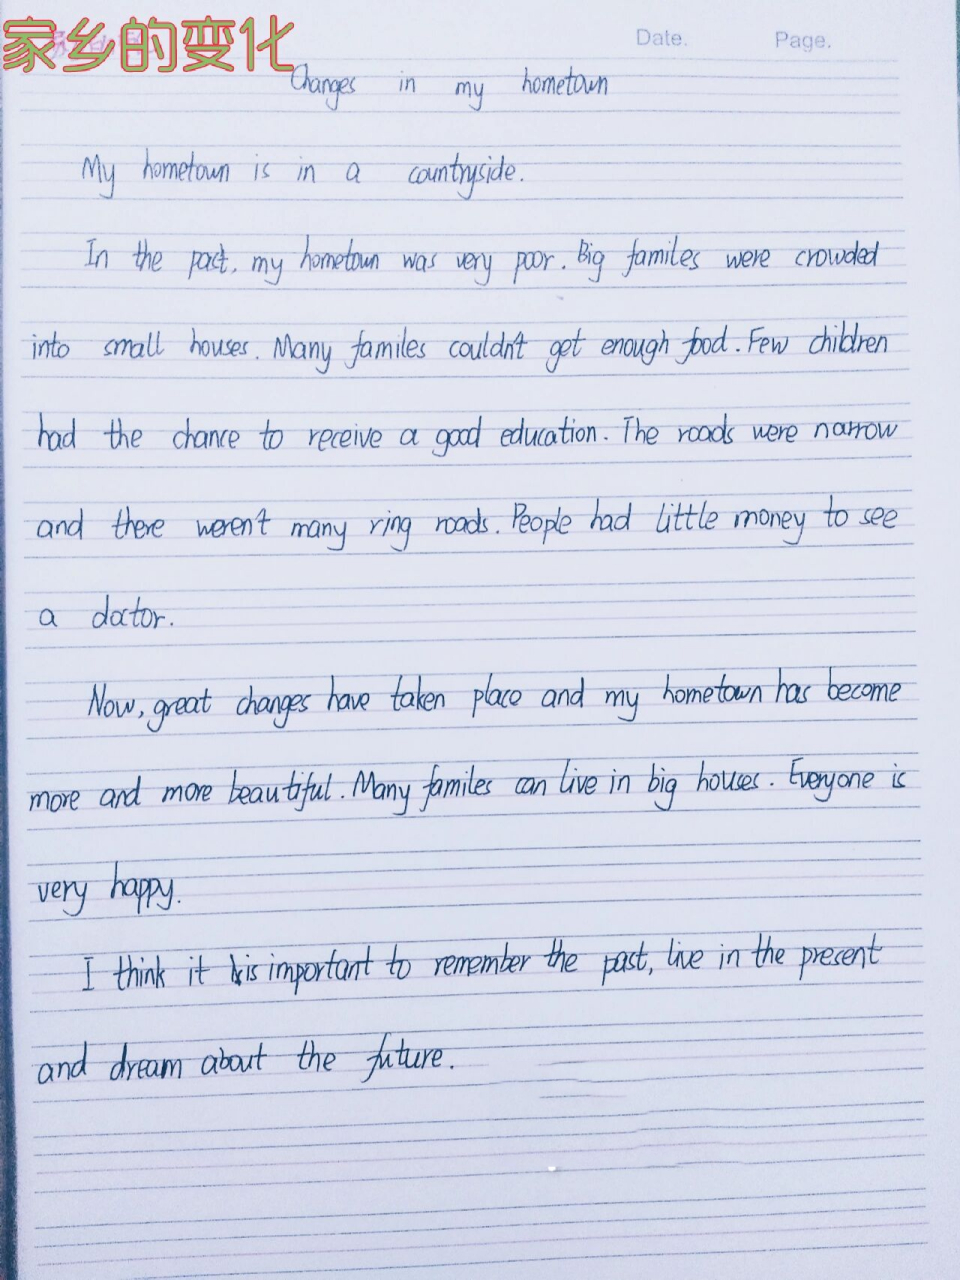 家乡的变化
Date.
Page.
Changes in my hometown
My hometown is in a countryside.
In the past, my hometown was very poor. Big familes were crowded
into small houses. Many familes couldn't get enough food. Few children
had the chance to receive a good education. The roads were narrow
and there weren't many ring roads. People had little money to see
a doctor.
Now, great changes have taken place and my hometown has become
more and more beautiful. Many familes can live in big houses. Everyone is
very happy.
I think it is important to remember the past, live in the present
and dream about the future.